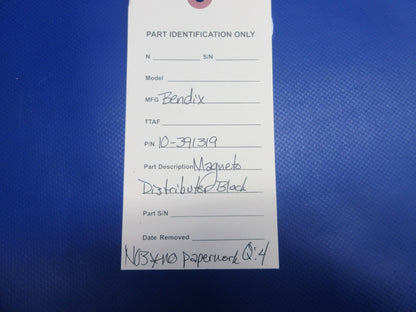 PART IDENTIFICATION ONLY
N S/N
Model
MFG Bendix
TTAF
P/N 10-391319
Part Description Magneto
Distributer Block
Part S/N
Date Removed
paperwork Q:4